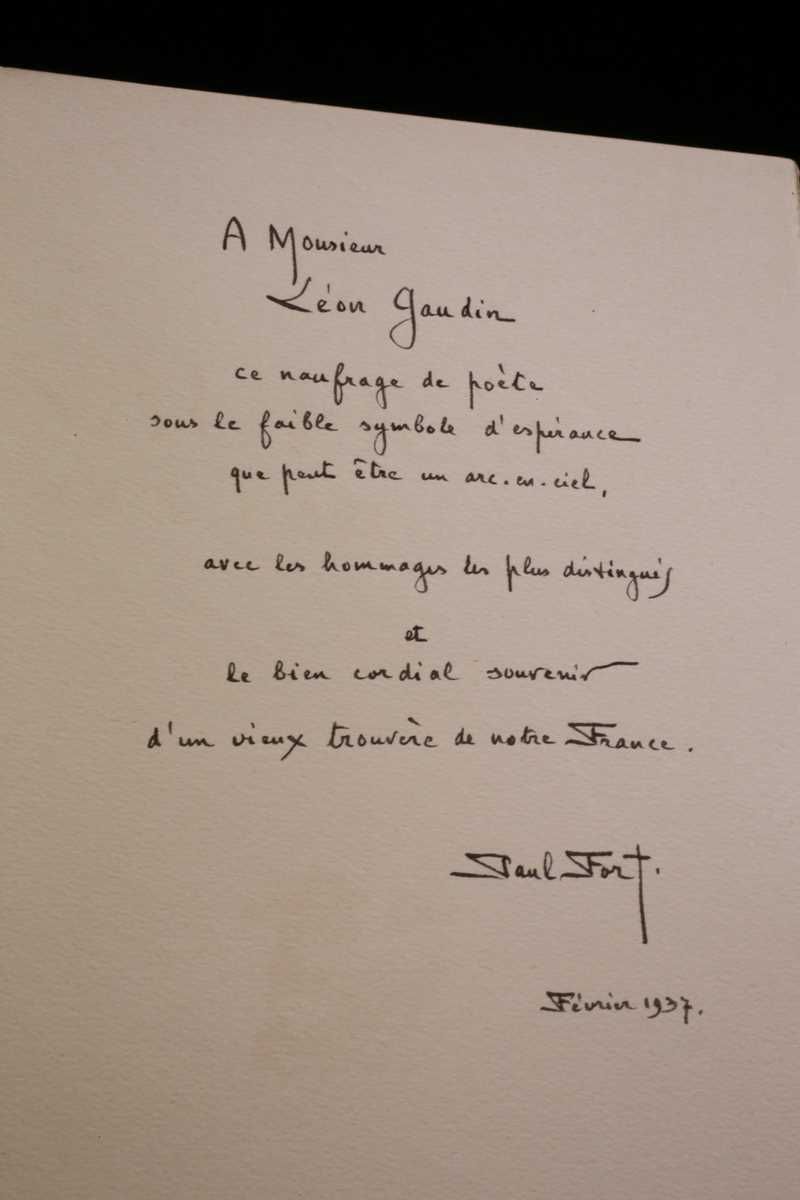 A Monsieur
Léon Gaudin
ce naufrage de poète
sous le faible symbole d'espérance
que peut être un arc-en-ciel,
avec les hommages les plus distingués
et
le bien cordial souvenir
d'un vieux trouvère de notre France.
Paul Fort.
Février 1937.